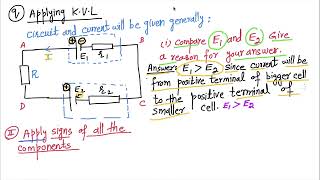 q) Applying K.V.L
circuit and current will be given generally:
A
B
I
E₁
r₁
R
E₂
r₂
D
C
(i) Compare E₁ and E₂. Give
a reason for your answer.
Answer: E₁ > E₂ since current will be
from positive terminal of bigger cell
to the positive terminal of
smaller cell. E₁ > E₂
II Apply signs of all the
components